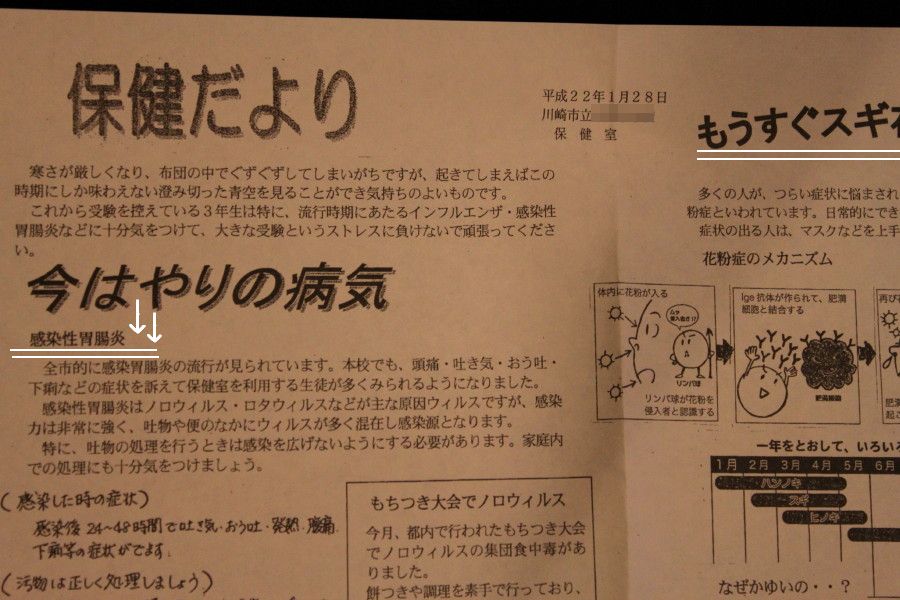 保健だより
平成22年1月28日
川崎市立
保健室
寒さが厳しくなり、布団の中でぐずぐずしてしまいがちですが、起きてしまえばこの
時期にしか味わえない澄み切った青空を見ることができ気持ちのよいものです。
これから受験を控えている3年生は特に、流行時期にあたるインフルエンザ・感染性
胃腸炎などに十分気をつけて、大きな受験というストレスに負けないで頑張ってくださ
い。
今はやりの病気
感染性胃腸炎
全市的に感染胃腸炎の流行が見られています。本校でも、頭痛・吐き気・おう吐・
下痢などの症状を訴えて保健室を利用する生徒が多くみられるようになりました。
感染性胃腸炎はノロウィルス・ロタウィルスなどが主な原因ウィルスですが、感染
力は非常に強く、吐物や便のなかにウィルスが多く混在し感染源となります。
特に、吐物の処理を行うときは感染を広げないようにする必要があります。家庭内
での処理にも十分気をつけましょう。
(感染した時の症状)
感染後24~48時間で吐き気・おう吐・発熱・腹痛
下痢等の症状がでます。
(汚物は正しく処理しましょう)
もちつき大会でノロウィルス
今月、都内で行われたもちつき大会
でノロウィルスの集団食中毒があ
りました。
餅つきや調理を素手で行っており、
もうすぐスギ花
多くの人が、つらい症状に悩まされ
粉症といわれています。日常的にでき
症状の出る人は、マスクなどを上手
花粉症のメカニズム
体内に花粉が入る
リンパ球
リンパ球が花粉を
侵入者と認識する
Ige抗体が作られて、肥満
細胞と結合する
肥満細胞
再び
肥満
起こ
一年をとおして、いろいろ
1月 2月 3月 4月 5月 6月
ハンノキ
スギ
ヒノキ
なぜかゆいの・・?